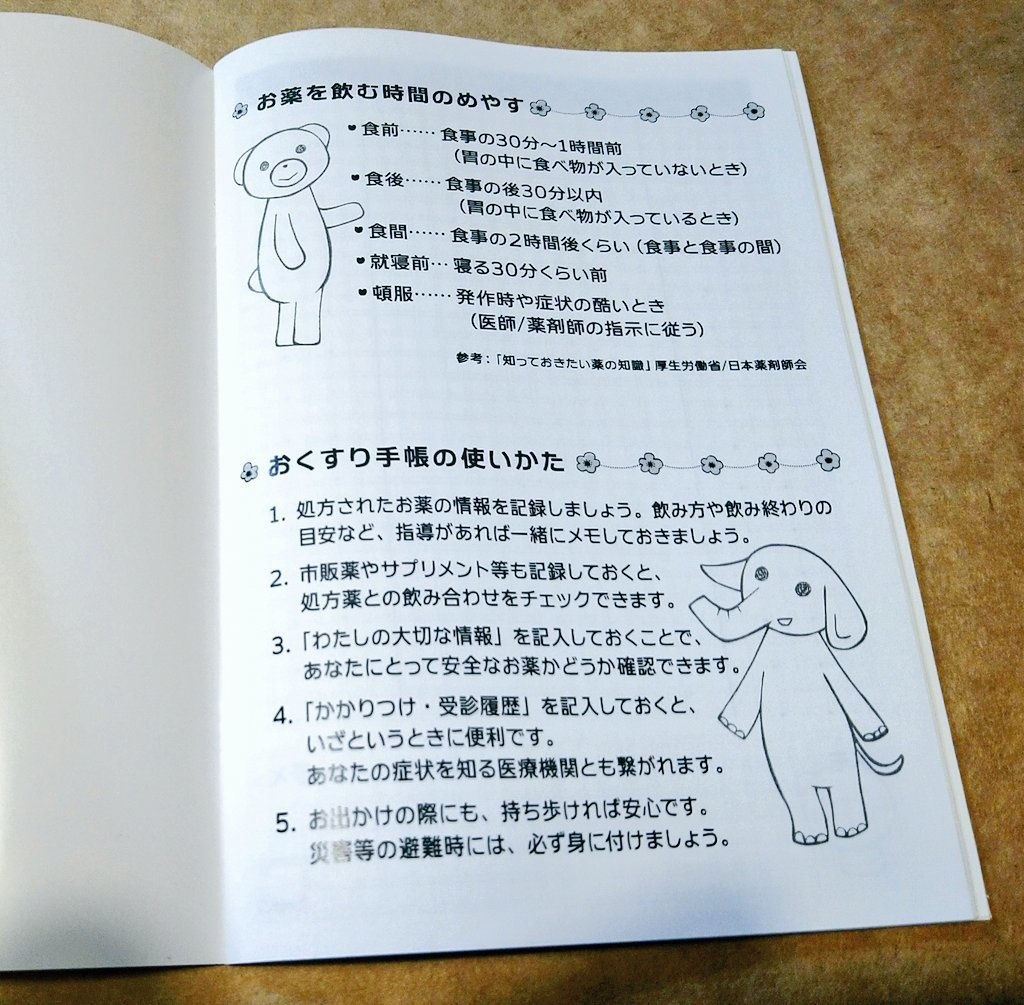 お薬を飲む時間のめやす
●食前…… 食事の30分～1時間前
（胃の中に食べ物が入っていないとき）
●食後…… 食事の後30分以内
（胃の中に食べ物が入っているとき）
●食間…… 食事の2時間後くらい（食事と食事の間）
●就寝前… 寝る30分くらい前
●頓服…… 発作時や症状の酷いとき
（医師/薬剤師の指示に従う）
参考：「知っておきたい薬の知識」厚生労働省/日本薬剤師会
おくすり手帳の使いかた
1. 処方されたお薬の情報を記録しましょう。飲み方や飲み終わりの
目安など、指導があれば一緒にメモしておきましょう。
2. 市販薬やサプリメント等も記録しておくと、
処方薬との飲み合わせをチェックできます。
3. 「わたしの大切な情報」を記入しておくことで、
あなたにとって安全なお薬かどうか確認できます。
4. 「かかりつけ・受診履歴」を記入しておくと、
いざというときに便利です。
あなたの症状を知る医療機関とも繋がれます。
5. お出かけの際にも、持ち歩ければ安心です。
災害等の避難時には、必ず身に付けましょう。